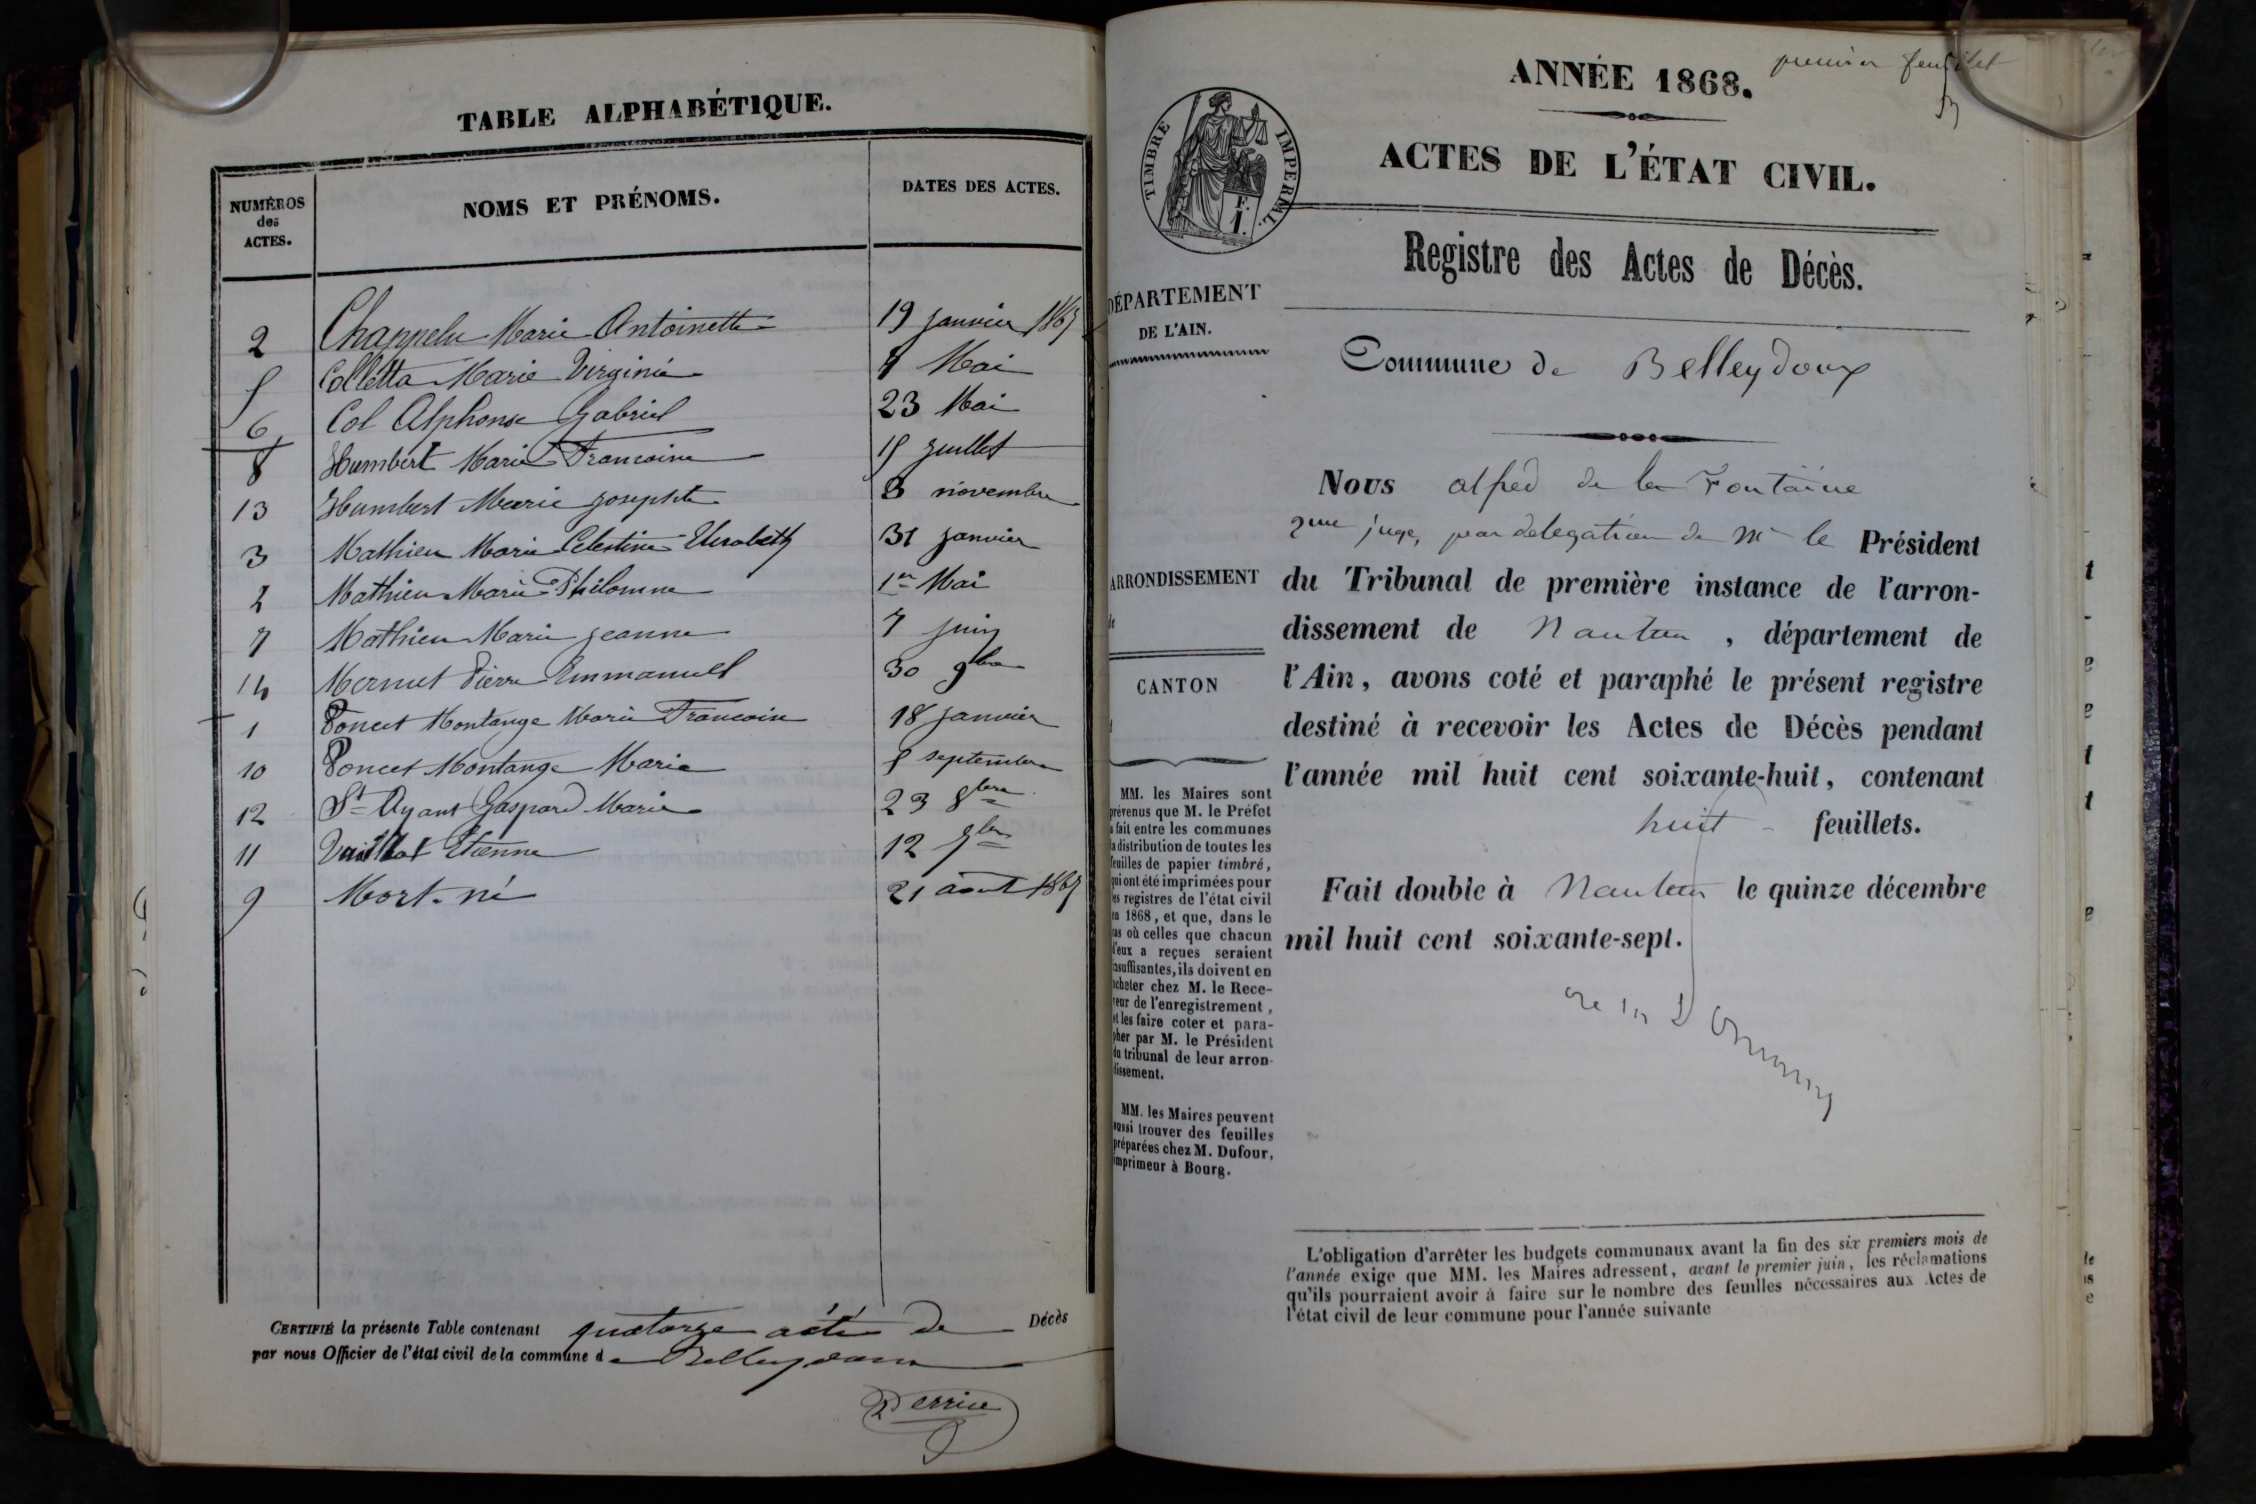 TABLE ALPHABÉTIQUE.
NUMÉROS
des
ACTES.
NOMS ET PRÉNOMS.
DATES DES ACTES.
2 Chappelu Marie Antoinette 19 janvier 1867
5 Colletta Marie Virginie 4 Mai
6 Col Alphonse Gabriel 23 Mai
8 Humbert Marie Francoise 15 juillet
13 Humbert Marie josephte 3 novembre
3 Mathieu Marie Celestine Elisabeth 31 janvier
4 Mathieu Marie Philomne 1er Mai
7 Mathieu Marie jeanne 7 juin
14 Mermet Pierre Emmanuel 30 9bre
1 Poncet Montange Marie Francoise 18 janvier
10 Poncet Montange Marie 5 septembre
12 St Oyant Gaspard Marie 23 8bre
11 Vuillot Etienne 12 7bre
9 Mort-né 21 août 1867
CERTIFIÉ la présente Table contenant quatorze actes de Décès
par nous Officier de l'état civil de la commune de Belleydoux
premier feuillet
ANNÉE 1868.
ACTES DE L'ÉTAT CIVIL.
TIMBRE IMPÉRIAL.
F.
1.
Registre des Actes de Décès.
DÉPARTEMENT
DE L'AIN.
Commune de Belleydoux
Nous alfred de la Fontaine
juge, par delegation de Mr le Président
ARRONDISSEMENT
de
du Tribunal de première instance de l'arron-
dissement de Nantua, département de
CANTON
l'Ain, avons coté et paraphé le présent registre
destiné à recevoir les Actes de Décès pendant
l'année mil huit cent soixante-huit, contenant
huit feuillets.
Fait double à Nantua le quinze décembre
mil huit cent soixante-sept.
MM. les Maires sont
prévenus que M. le Préfet
a fait entre les communes
la distribution de toutes les
feuilles de papier timbré,
qui ont été imprimées pour
les registres de l'état civil
en 1868, et que, dans le
cas où celles que chacun
d'eux a reçues seraient
insuffisantes, ils doivent en
acheter chez M. le Rece-
veur de l'enregistrement,
et les faire coter et para-
pher par M. le Président
du tribunal de leur arron-
dissement.
MM. les Maires peuvent
aussi trouver des feuilles
préparées chez M. Dufour,
imprimeur à Bourg.
L'obligation d'arrêter les budgets communaux avant la fin des six premiers mois de
l'année exige que MM. les Maires adressent, avant le premier juin, les réclamations
qu'ils pourraient avoir à faire sur le nombre des feuilles nécessaires aux Actes de
l'état civil de leur commune pour l'année suivante